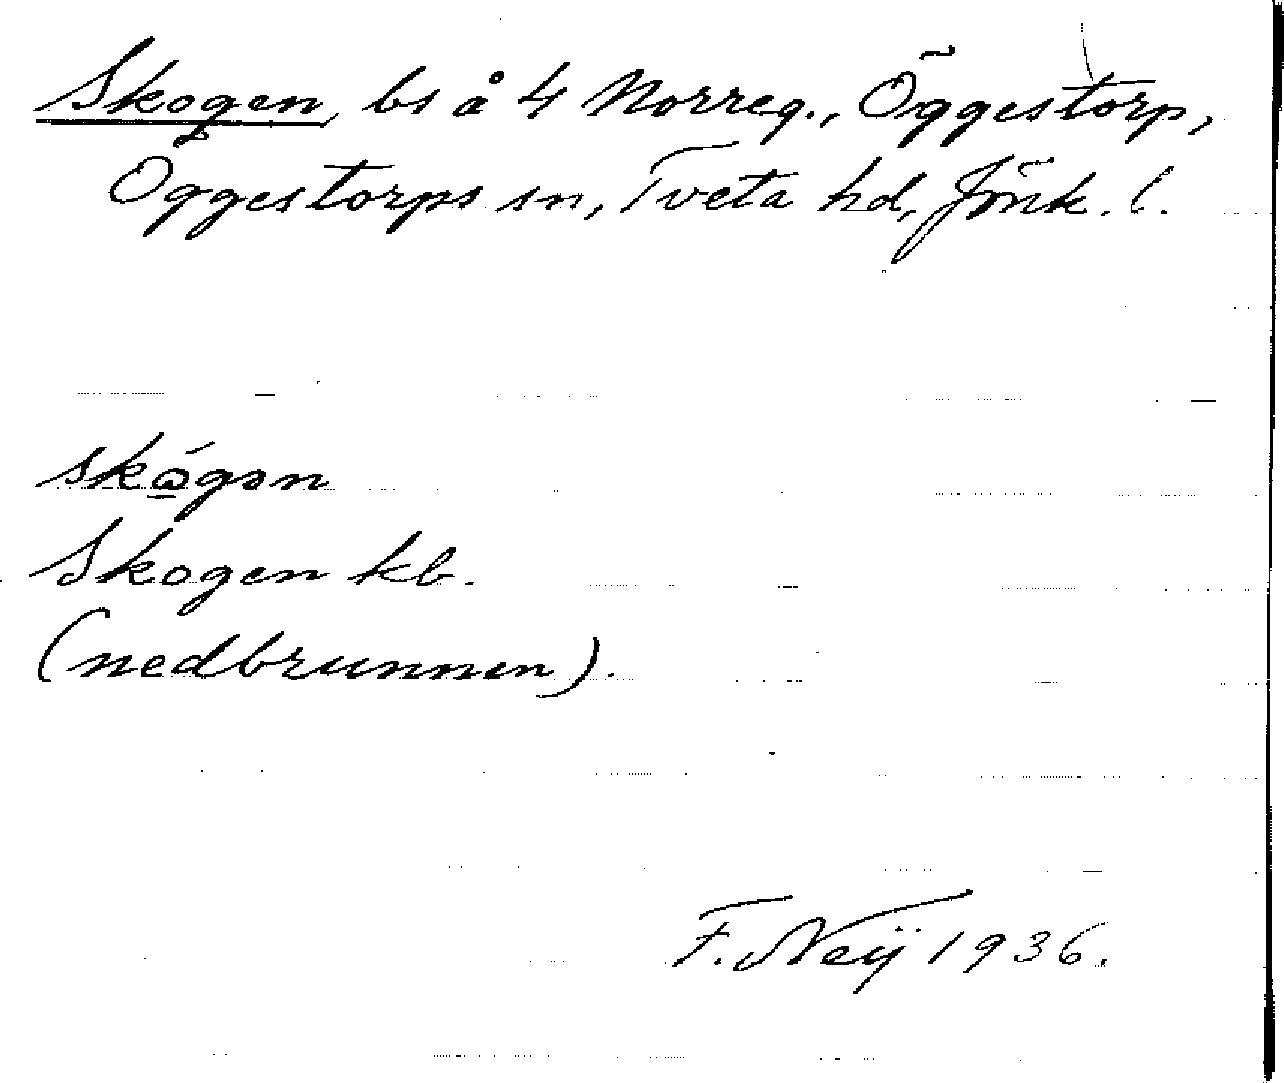 Skogen, bs å 4 Norreg., Öggestorp,
Öggestorps sn, Tveta hd, Jönk. l.
skǿgən
Skogen kb.
(nedbrunnen).
F. Neij 1936.